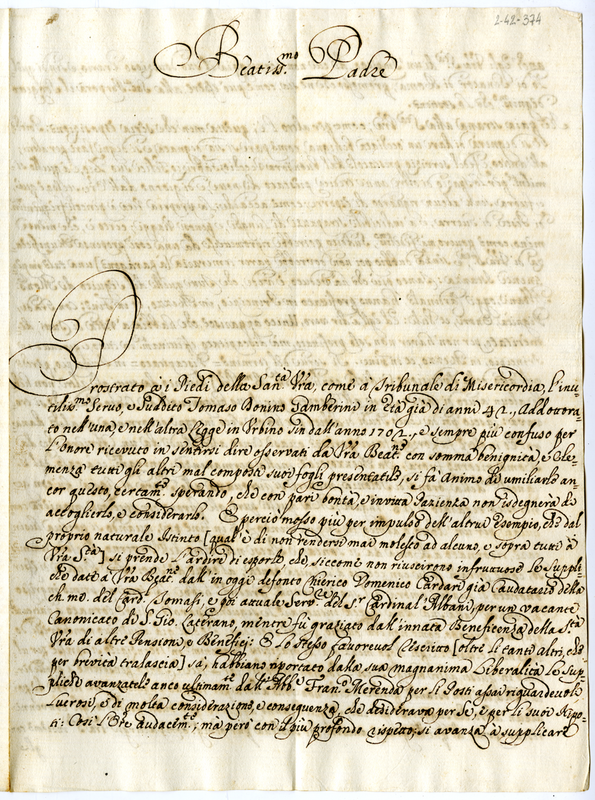 2-42-374
Beatiss.mo Padre
Prostrato à i Piedi della San.ta Vra, come à Tribunale di Misericordia, l'inu-
tiliss.mo Servo, e Suddito Tomaso Bonino Gamberini in età già di anni 42., Addottora-
to nell'una, e nell'altra Legge in Urbino sin dall'anno 1702., e sempre più confuso per
l'onore ricevuto in sentirsi dire osservati da Vra Beat.ne con somma benignità, e Cle-
menza tutti gli altri mal composti suoi fogli presentatile, si fà Animo di umiliarle an-
cor questo, certam.te sperando, che con pari bontà, e invitta Pazienza non isdegnerà di
accoglierlo, e considerarlo. E perciò mosso più per impulso dell'altrui esempio, che dal
proprio naturale Istinto [qual'è di non rendersi mai molesto ad alcuno, e sopra tutti à
Vra S.tà] si prende l'ardire di esporle, che siccome non riuscirono infruttuose le suppli-
che date à Vra Beat.ne dall'in oggi defonto Chierico Domenico Cardari già Caudatario della
ch: me: del Card. Tomasi, e poi attuale Serv.re del S.r Cardinal Albani per un vacante
Canonicato di S. Gio: Laterano, mentre fù graziato dall'innata Beneficenza della S.tà
Vra di altre Pensioni, e Beneficj: E lo stesso favorevol Rescritto [oltre li tanti altri, che
per brevità tralascia] sà, habbiano riportato dalla sua magnanima Liberalità le Sup-
pliche avanzatele anco ultimam.te dall'Abb.e Fran.co Merenda per li Posti assai riguardevoli
Lucrosi, e di molta considerazione, e conseguenza, che desiderava per sè, e per li suoi Nipo-
ti: Così l'Ore audacem.te; mà però con il più profondo rispetto, si avanza à supplicare